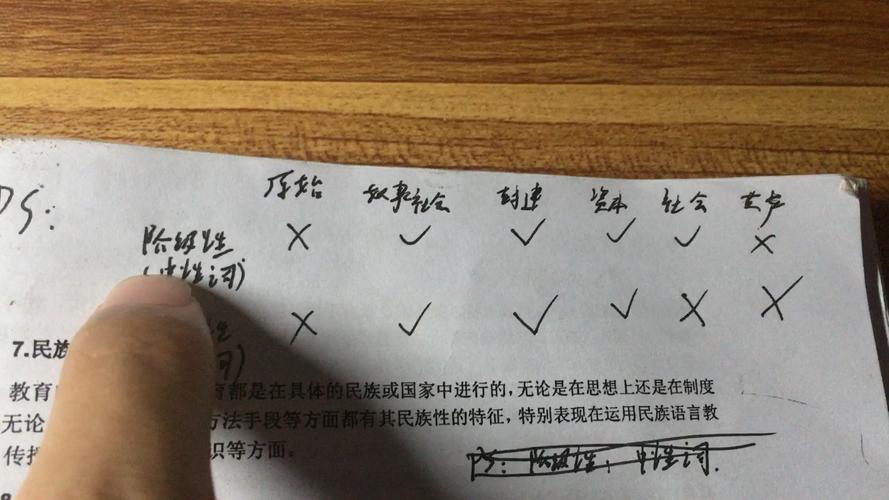 PS：
原始 奴隶社会 封建 资本 社会 共产
阶级性 × ✓ ✓ ✓ ✓ ×
(中性词)
性 × ✓ ✓ ✓ × ×
词)
7.民族
教育 育都是在具体的民族或国家中进行的，无论是在思想上还是在制度
无论 方法手段等方面都有其民族性的特征，特别表现在运用民族语言教
传授 识等方面。
PS：阶级性：中性词.
8